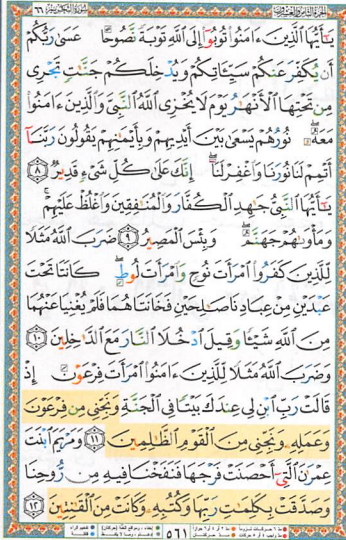 الجزء الثامن والعشرون سورة التحريم ٦٦
يَٰٓأَيُّهَا ٱلَّذِينَ ءَامَنُوا۟ تُوبُوٓا۟ إِلَى ٱللَّهِ تَوْبَةً نَّصُوحًا عَسَىٰ رَبُّكُمْ
أَن يُكَفِّرَ عَنكُمْ سَيِّـَٔاتِكُمْ وَيُدْخِلَكُمْ جَنَّٰتٍ تَجْرِى
مِن تَحْتِهَا ٱلْأَنْهَٰرُ يَوْمَ لَا يُخْزِى ٱللَّهُ ٱلنَّبِىَّ وَٱلَّذِينَ ءَامَنُوا۟
مَعَهُۥ ۖ نُورُهُمْ يَسْعَىٰ بَيْنَ أَيْدِيهِمْ وَبِأَيْمَٰنِهِمْ يَقُولُونَ رَبَّنَآ
أَتْمِمْ لَنَا نُورَنَا وَٱغْفِرْ لَنَآ ۖ إِنَّكَ عَلَىٰ كُلِّ شَىْءٍ قَدِيرٌ ٨
يَٰٓأَيُّهَا ٱلنَّبِىُّ جَٰهِدِ ٱلْكُفَّارَ وَٱلْمُنَٰفِقِينَ وَٱغْلُظْ عَلَيْهِمْ ۚ
وَمَأْوَىٰهُمْ جَهَنَّمُ ۖ وَبِئْسَ ٱلْمَصِيرُ ٩ ضَرَبَ ٱللَّهُ مَثَلًا
لِّلَّذِينَ كَفَرُوا۟ ٱمْرَأَتَ نُوحٍ وَٱمْرَأَتَ لُوطٍ ۖ كَانَتَا تَحْتَ
عَبْدَيْنِ مِنْ عِبَادِنَا صَٰلِحَيْنِ فَخَانَتَاهُمَا فَلَمْ يُغْنِيَا عَنْهُمَا
مِنَ ٱللَّهِ شَيْـًٔا وَقِيلَ ٱدْخُلَا ٱلنَّارَ مَعَ ٱلدَّٰخِلِينَ ١٠
وَضَرَبَ ٱللَّهُ مَثَلًا لِّلَّذِينَ ءَامَنُوا۟ ٱمْرَأَتَ فِرْعَوْنَ إِذْ
قَالَتْ رَبِّ ٱبْنِ لِى عِندَكَ بَيْتًا فِى ٱلْجَنَّةِ وَنَجِّنِى مِن فِرْعَوْنَ
وَعَمَلِهِۦ وَنَجِّنِى مِنَ ٱلْقَوْمِ ٱلظَّٰلِمِينَ ١١ وَمَرْيَمَ ٱبْنَتَ
عِمْرَٰنَ ٱلَّتِىٓ أَحْصَنَتْ فَرْجَهَا فَنَفَخْنَا فِيهِ مِن رُّوحِنَا
وَصَدَّقَتْ بِكَلِمَٰتِ رَبِّهَا وَكُتُبِهِۦ وَكَانَتْ مِنَ ٱلْقَٰنِتِينَ ١٢
٥٦١